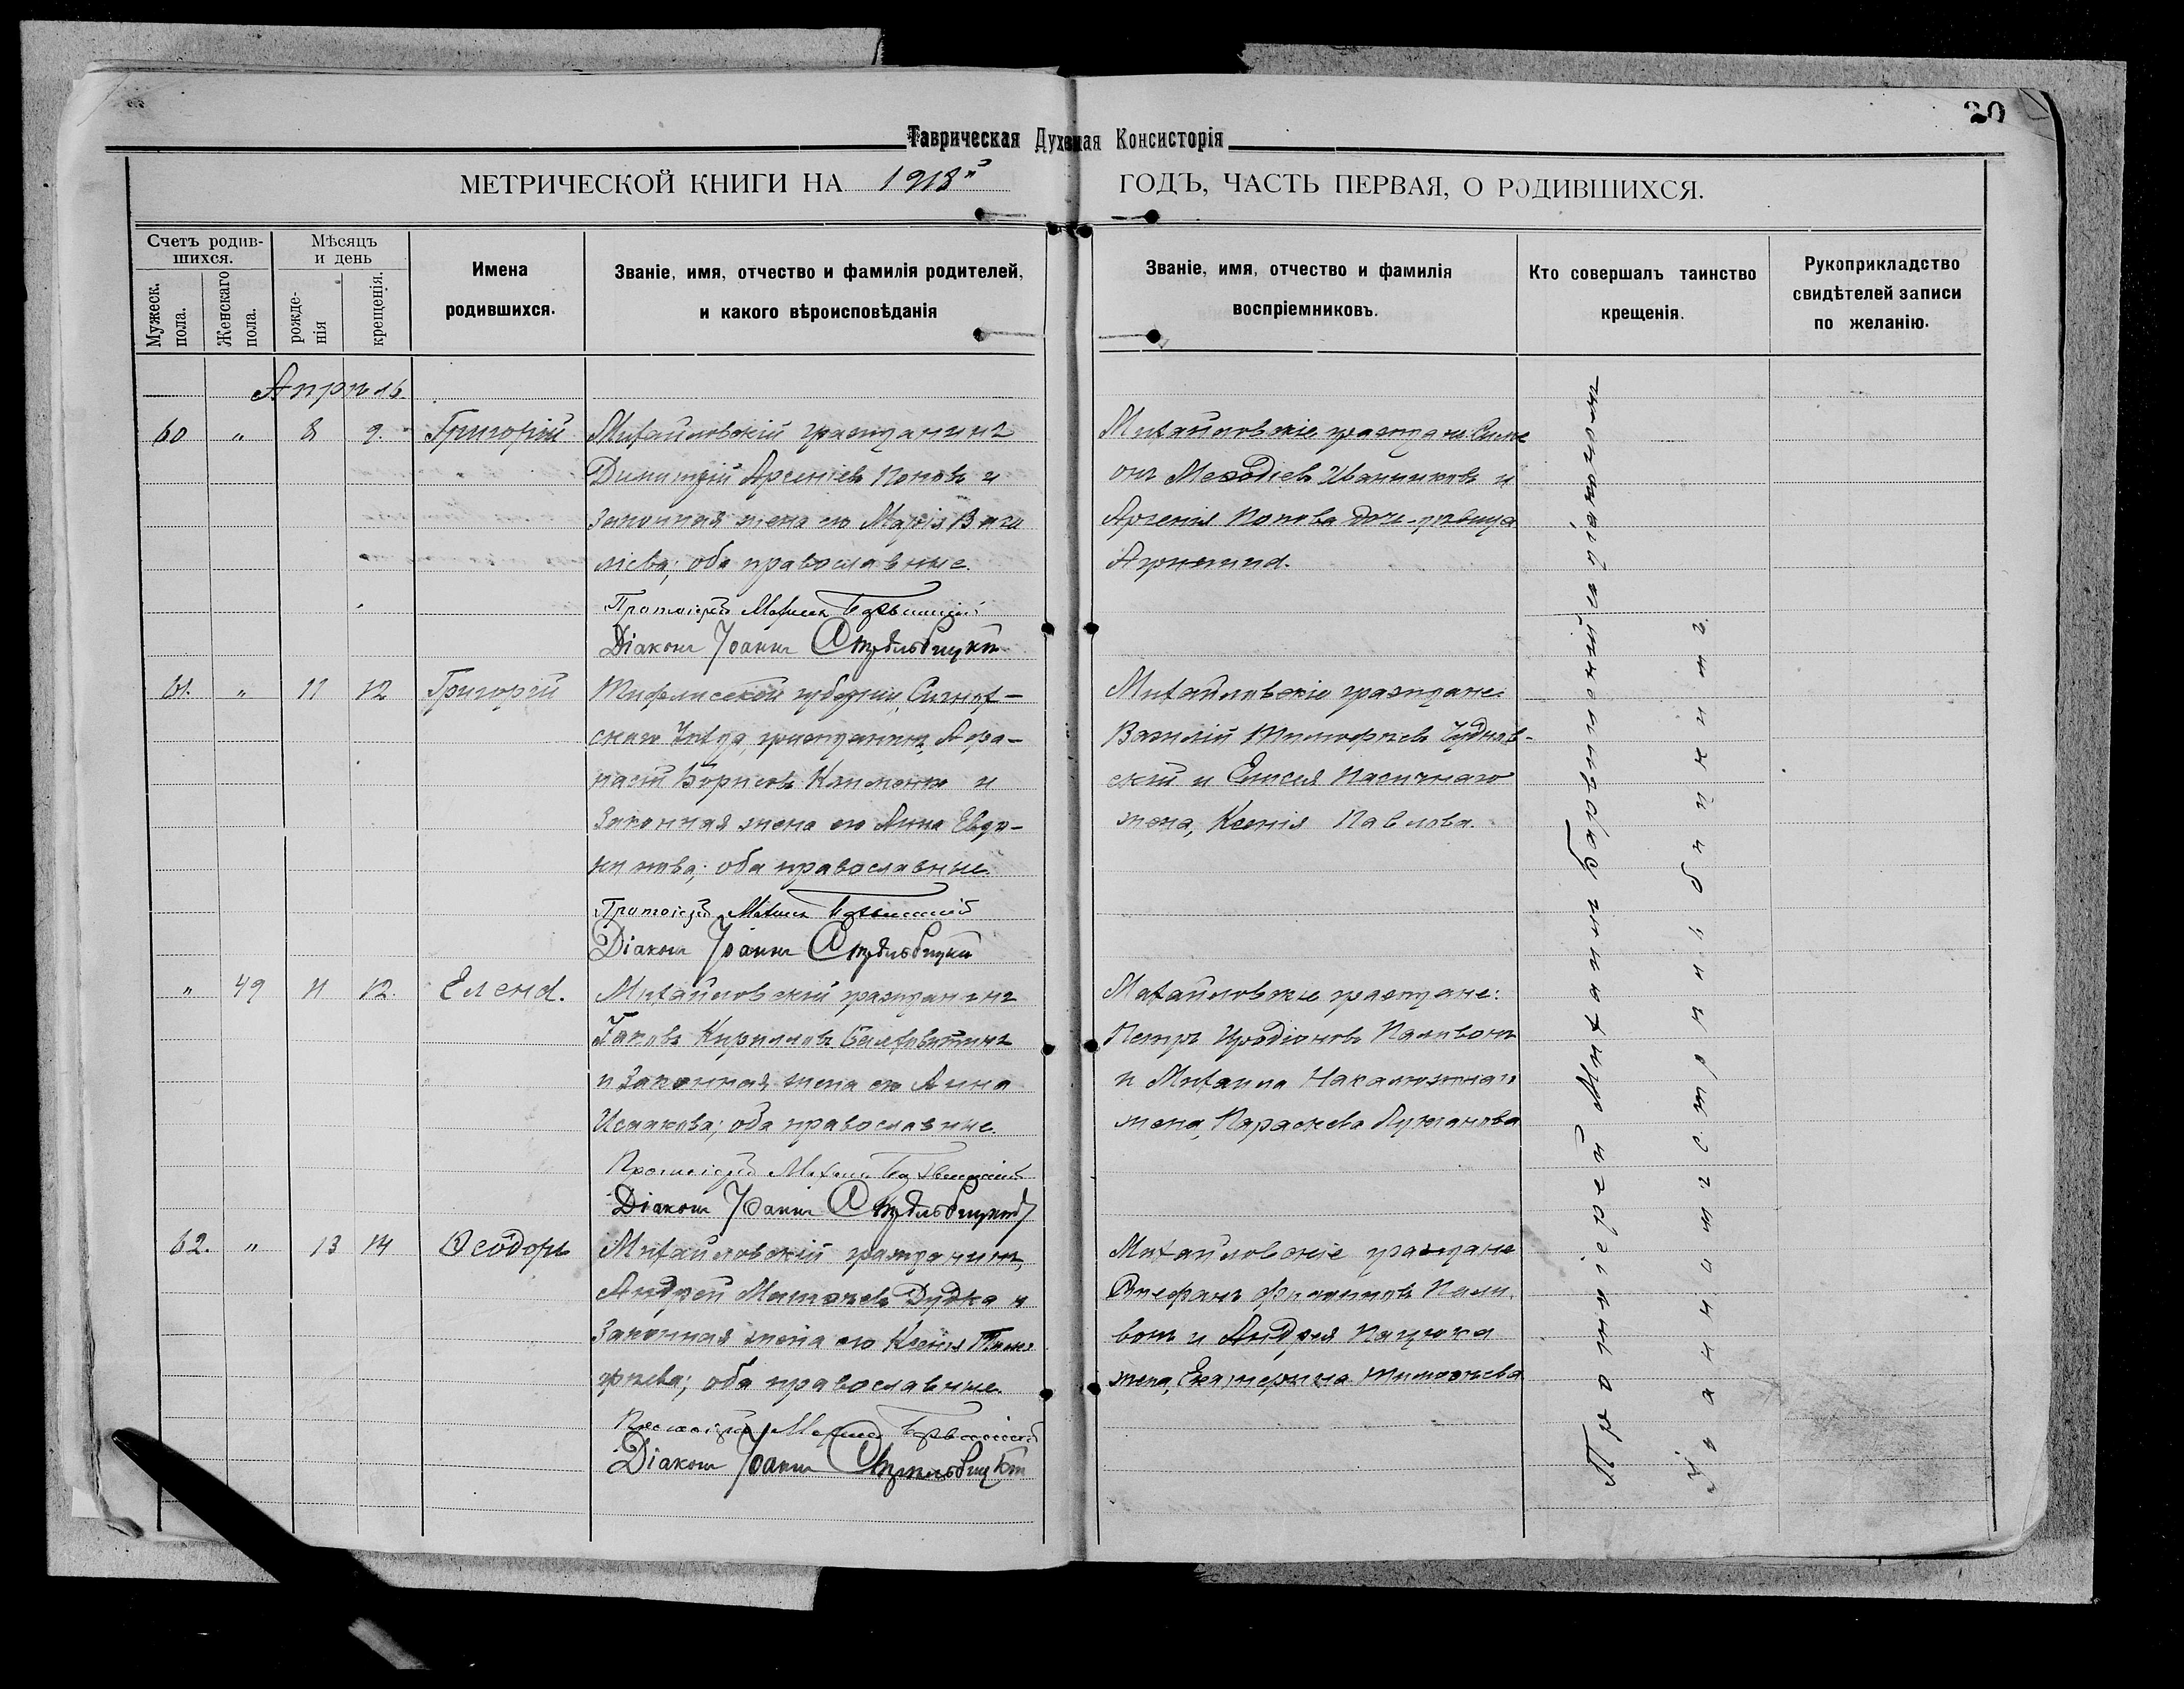 20
Таврическая Духовная Консисторія
МЕТРИЧЕСКОЙ КНИГИ НА 1918й ГОДЪ, ЧАСТЬ ПЕРВАЯ, О РОДИВШИХСЯ.
Счетъ родившихся.
Мужеск. пола.
Женскаго пола.
Мѣсяцъ и день
рожденія
крещенія.
Имена родившихся.
Званіе, имя, отчество и фамилія родителей,
и какого вѣроисповѣданія
Званіе, имя, отчество и фамилія
воспріемниковъ.
Кто совершалъ таинство
крещенія.
Рукоприкладство
свидѣтелей записи
по желанію.
Апрѣль
60 " 8 9. Григорій
Михайловскій гражданинъ
Димитрій Арсеніевъ Поповъ и
законная жена его Марія Васи
ліева; оба православные.
Протоіерей Михаилъ
Діаконъ Іоаннъ Стрѣльбицкій
Михайловскіе граждане: Симе
онъ Меѳодіевъ Иванниковъ и
Арсенія Попова дочь-дѣвица
61. " 11 12 Григорій
Тифлисской губерніи, Сигнах-
скаго уѣзда, гражданинъ Аѳа-
насій Борисовъ Клименко и
законная жена его Анна Евдо-
кимова; оба православные.
Протоіерей Михаилъ
Діаконъ Іоаннъ Стрѣльбицкій
Михайловскіе граждане:
Василій Тимофѣевъ Чуднов-
скій и Елисея Пасичнаго
жена, Ксенія Павлова.
" 49 11 12. Елена.
Михайловскій гражданинъ
Іаковъ Кирилловъ
и законная жена его Анна
Исаакова; оба православные.
Протоіерей Михаилъ
Діаконъ Іоаннъ Стрѣльбицкій
Михайловскіе граждане:
Петръ Иродіоновъ Паливонъ
и Михаила Накалюжнаго
жена, Параскева Лукіанова
62. " 13 14 Ѳеодоръ
Михайловскій гражданинъ,
Андрей Матѳѣевъ Дудка и
законная жена его Ксенія Тимо
фѣева; оба православные.
Протоіерей Михаилъ
Діаконъ Іоаннъ Стрѣльбицкій
Михайловскіе граждане
Стефанъ Филипповъ Пали
вонъ и Андрея Пацюка
жена, Екатерина Тимоѳѣева
Протоіерей Михаилъ
Іоанномъ Стрѣльбицкимъ.